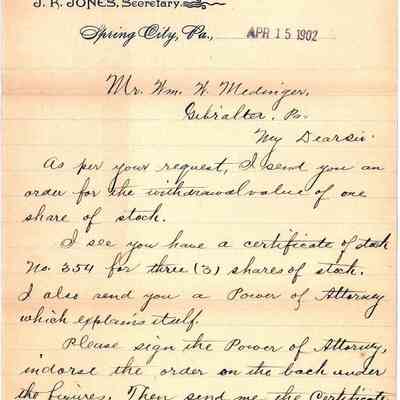 J. R. JONES, Secretary.
Spring City, Pa., APR 15 1902
Mr. Wm. W. Medinger,
Gibralter, Pa.
My Dear sir:
As per your request, I send you an
order for the withdrawal value of one
share of stock.
I see you have a certificate of stock
No. 354 for three (3) shares of stock.
I also send you a Power of Attorney
which explains itself.
Please sign the Power of Attorney,
indorse the order on the back under
the figures. Then send me the Certificate